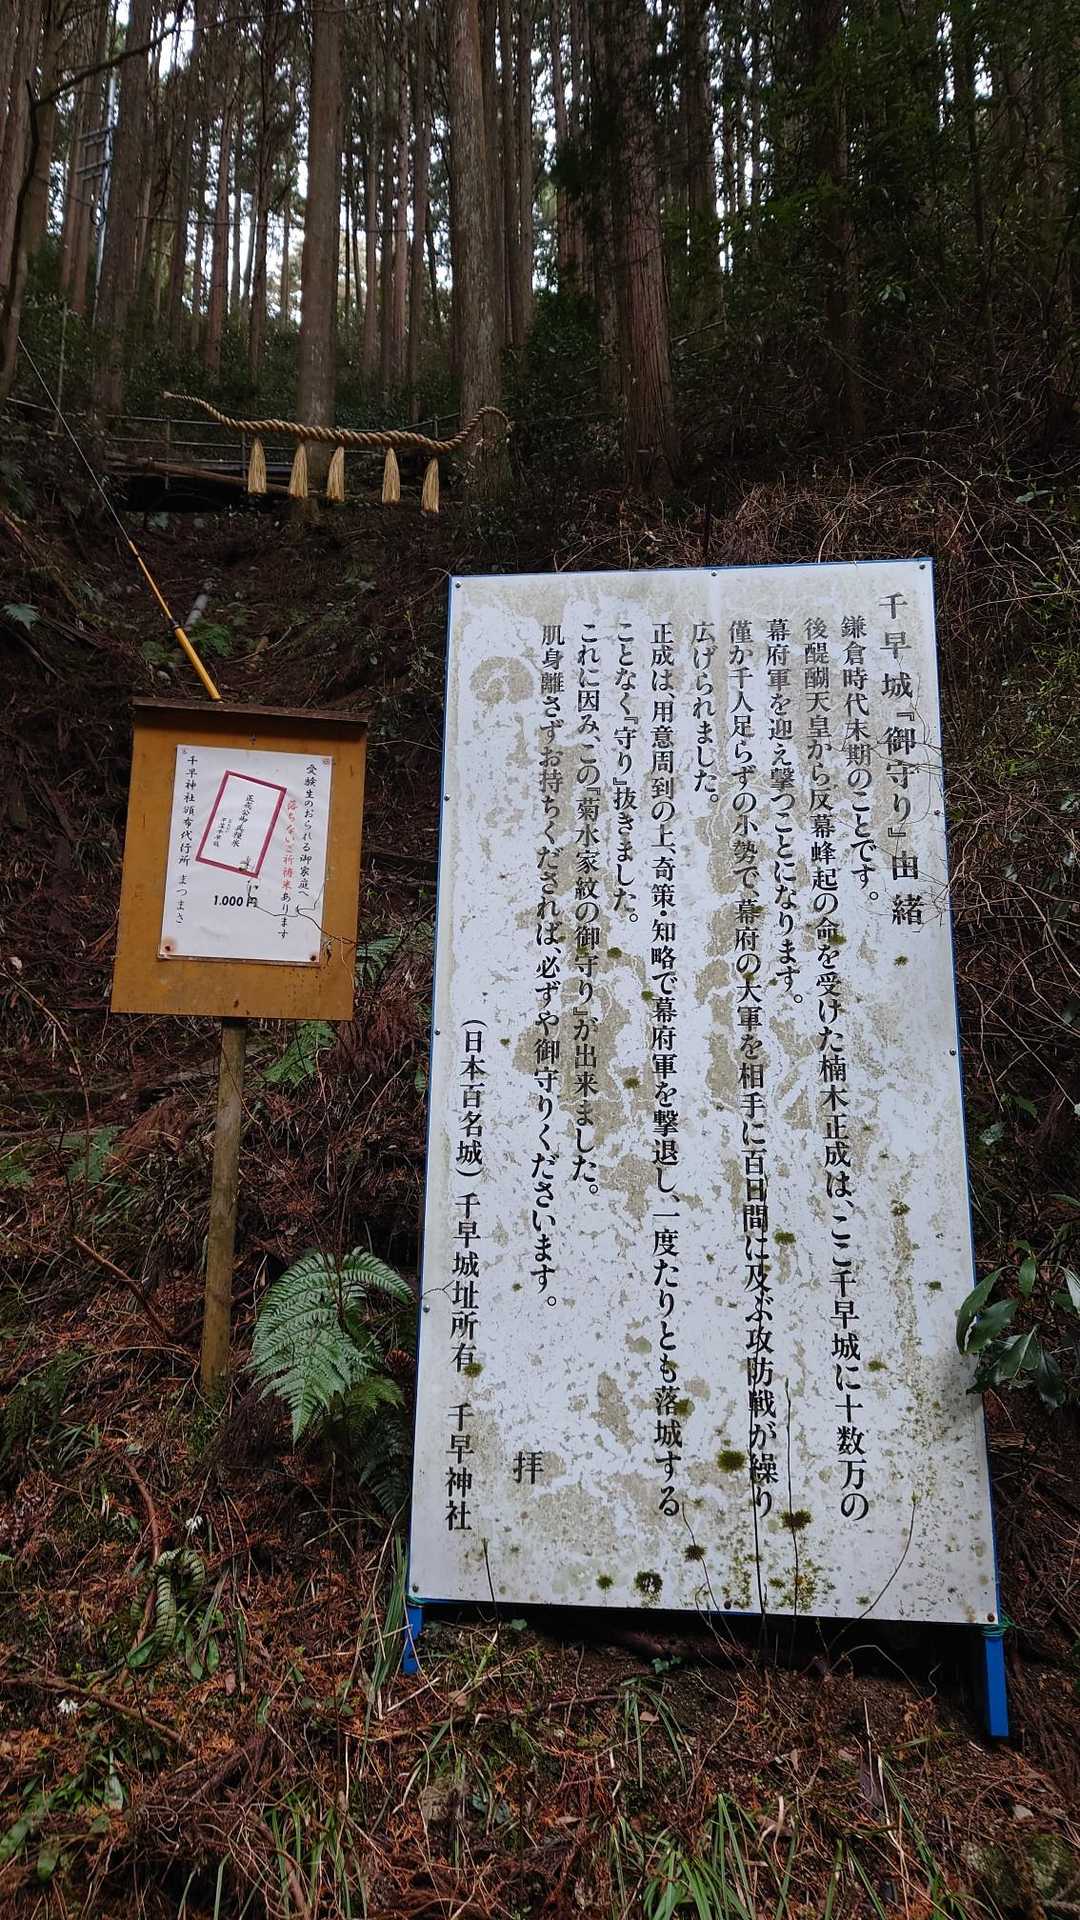 千早城『御守り』由緒
鎌倉時代末期のことです。
後醍醐天皇から反幕蜂起の命を受けた楠木正成は、ここ千早城に十数万の
幕府軍を迎え撃つことになります。
僅か千人足らずの小勢で、幕府の大軍を相手に百日間に及ぶ攻防戦が繰り
広げられました。
正成は、用意周到の上、奇策・知略で幕府軍を撃退し、一度たりとも落城する
ことなく『守り』抜きました。
これに因み、この『菊水家紋の御守り』が出来ました。
肌身離さずお持ちくだされば、必ずや御守りくださいます。
拝
(日本百名城)千早城址所有 千早神社
受験生のおられる御家庭へ
落ちないご祈祷米あります
1.000円
千早神社頒布代行所 まつまさ